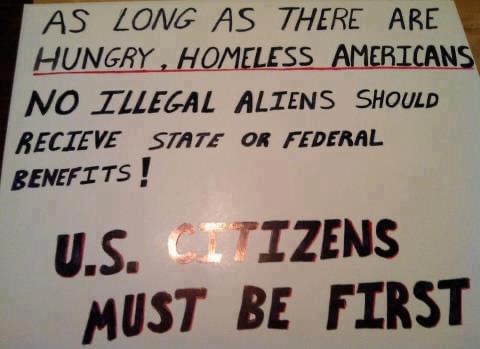 AS LONG AS THERE ARE
HUNGRY, HOMELESS AMERICANS
NO ILLEGAL ALIENS SHOULD
RECIEVE STATE OR FEDERAL
BENEFITS!
U.S. CITIZENS
MUST BE FIRST